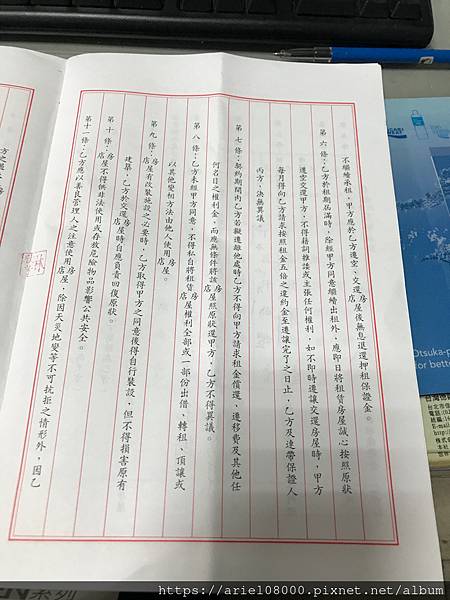 不繼續承租，甲方應於乙方遷空、交還店房屋後無息退還押租保證金。
第六條：乙方於租期屆滿時，除經甲方同意繼續出租外，應即日將租賃房屋誠心按照原狀
遷空交還甲方，不得藉詞推諉或主張任何權利，如不即時遷讓交還房屋時，甲方
每月得向乙方請求按照租金五倍之違約金至遷讓完了之日止，乙方及連帶保證人
丙方，決無異議。
第七條：契約期間內乙方若擬遷離他處時乙方不得向甲方請求租金償還、遷移費及其他任
何名目之權利金，而應無條件將該店房屋照原狀還甲方，乙方不得異議。
第八條：乙方未經甲方同意，不得私自將租賃店房屋權利全部或一部份出借、轉租、頂讓或
以其他變相方法由他人使用店房屋。
第九條：店房屋有改裝施設之必要時，乙方取得甲方之同意後得自行裝設，但不得損害原有
建築，乙方於交還店房屋時自應負責回復原狀。
第十條：店房屋不得供非法使用或存放危險物品影響公共安全。
第十一條：乙方應以善良管理人之注意使用店房屋，除因天災地變等不可抗拒之情形外，因乙
林
Otsuka-p
for better
台北市
E-mail
http://
https://ariel08000.pixnet.net/album